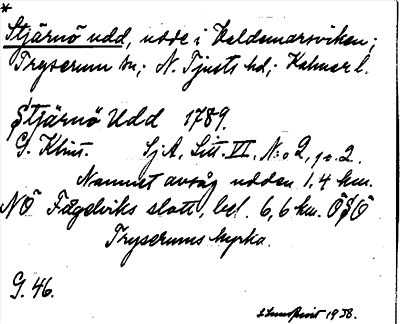 *
Stjärnö udd, udde i Valdemarsviken;
Tryserum sn; N. Tjusts hd; Kalmar l.
Stjärnö Udd 1789.
G. Klint. SjA, Litt. VI, N:o 2, p. 2.
Namnet avsåg udden 1,4 km.
NÖ Fågelviks slott, bel. 6,6 km. ÖSÖ
Tryserums kyrka.
G. 46.
1938.